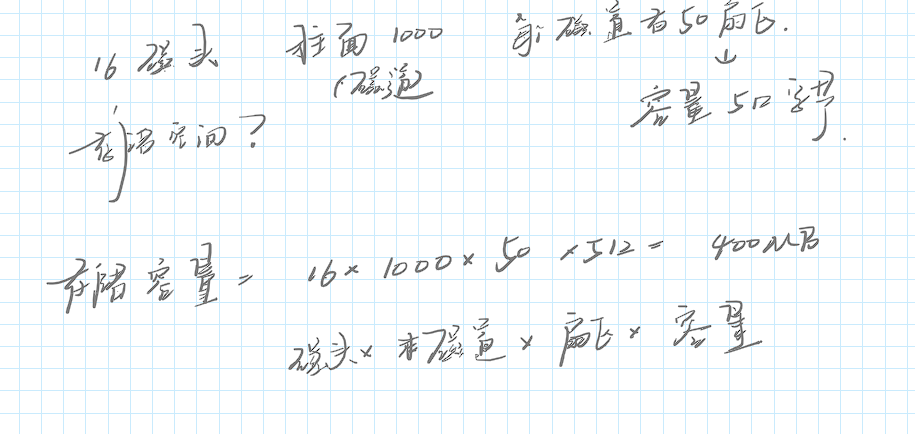 16磁头 柱面1000 每磁道有50扇区.
(磁道)
容量512字节.
存储空间?
存储容量= 16×1000×50×512= 400MB
磁头×磁道×扇区×容量